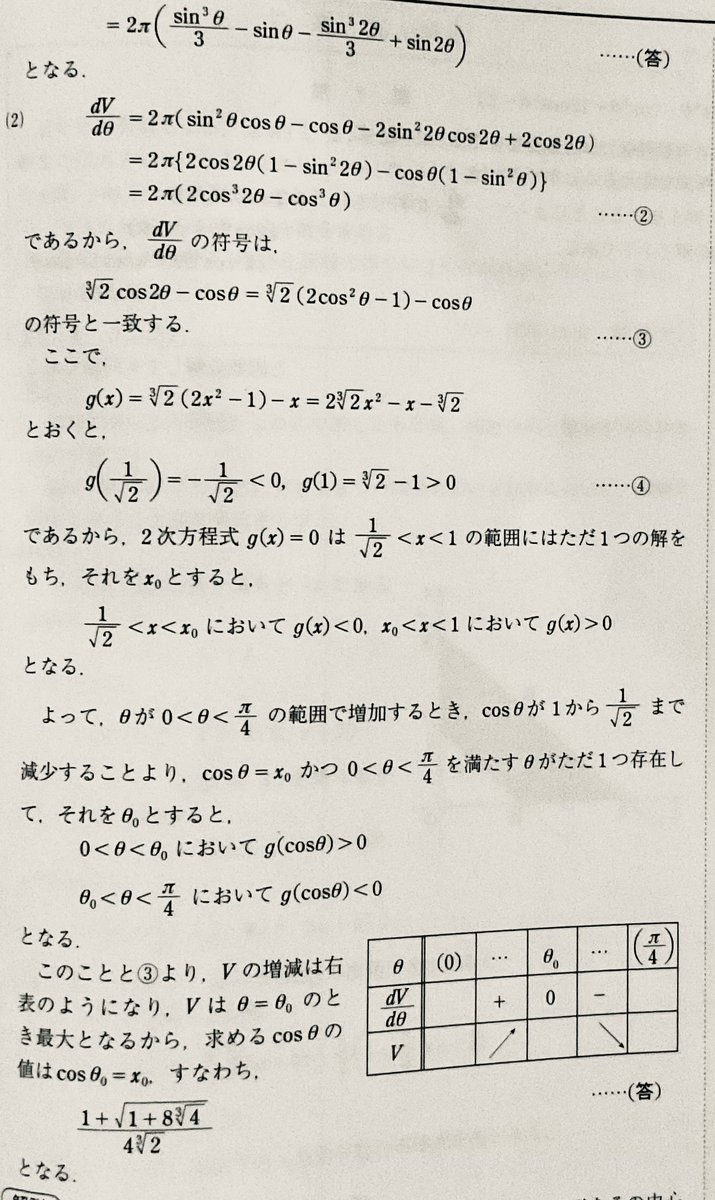 = 2π(sin³θ/3 − sinθ − sin³2θ/3 + sin2θ) ……(答)
となる．
(2) dV/dθ = 2π(sin²θcosθ − cosθ − 2sin²2θcos2θ + 2cos2θ)
= 2π{2cos2θ(1 − sin²2θ) − cosθ(1 − sin²θ)}
= 2π(2cos³2θ − cos³θ) ……②
であるから，dV/dθ の符号は，
∛2 cos2θ − cosθ = ∛2(2cos²θ − 1) − cosθ
の符号と一致する． ……③
ここで，
g(x) = ∛2(2x² − 1) − x = 2∛2x² − x − ∛2
とおくと，
g(1/√2) = −1/√2 < 0, g(1) = ∛2 − 1 > 0 ……④
であるから，2次方程式 g(x) = 0 は 1/√2 < x < 1 の範囲にはただ1つの解を
もち，それを x₀ とすると，
1/√2 < x < x₀ において g(x) < 0, x₀ < x < 1 において g(x) > 0
となる．
よって，θが 0 < θ < π/4 の範囲で増加するとき，cosθが1から 1/√2 まで
減少することより，cosθ = x₀ かつ 0 < θ < π/4 を満たすθがただ1つ存在し
て，それをθ₀とすると，
0 < θ < θ₀ において g(cosθ) > 0
θ₀ < θ < π/4 において g(cosθ) < 0
となる．
このことと③より，Vの増減は右
表のようになり，Vは θ = θ₀ のと
き最大となるから，求める cosθ の
値は cosθ₀ = x₀，すなわち，
(1 + √(1 + 8∛4))/(4∛2)
となる．
θ (0) … θ₀ … (π/4)
dV/dθ + 0 −
V ↗ ↘
……(答)